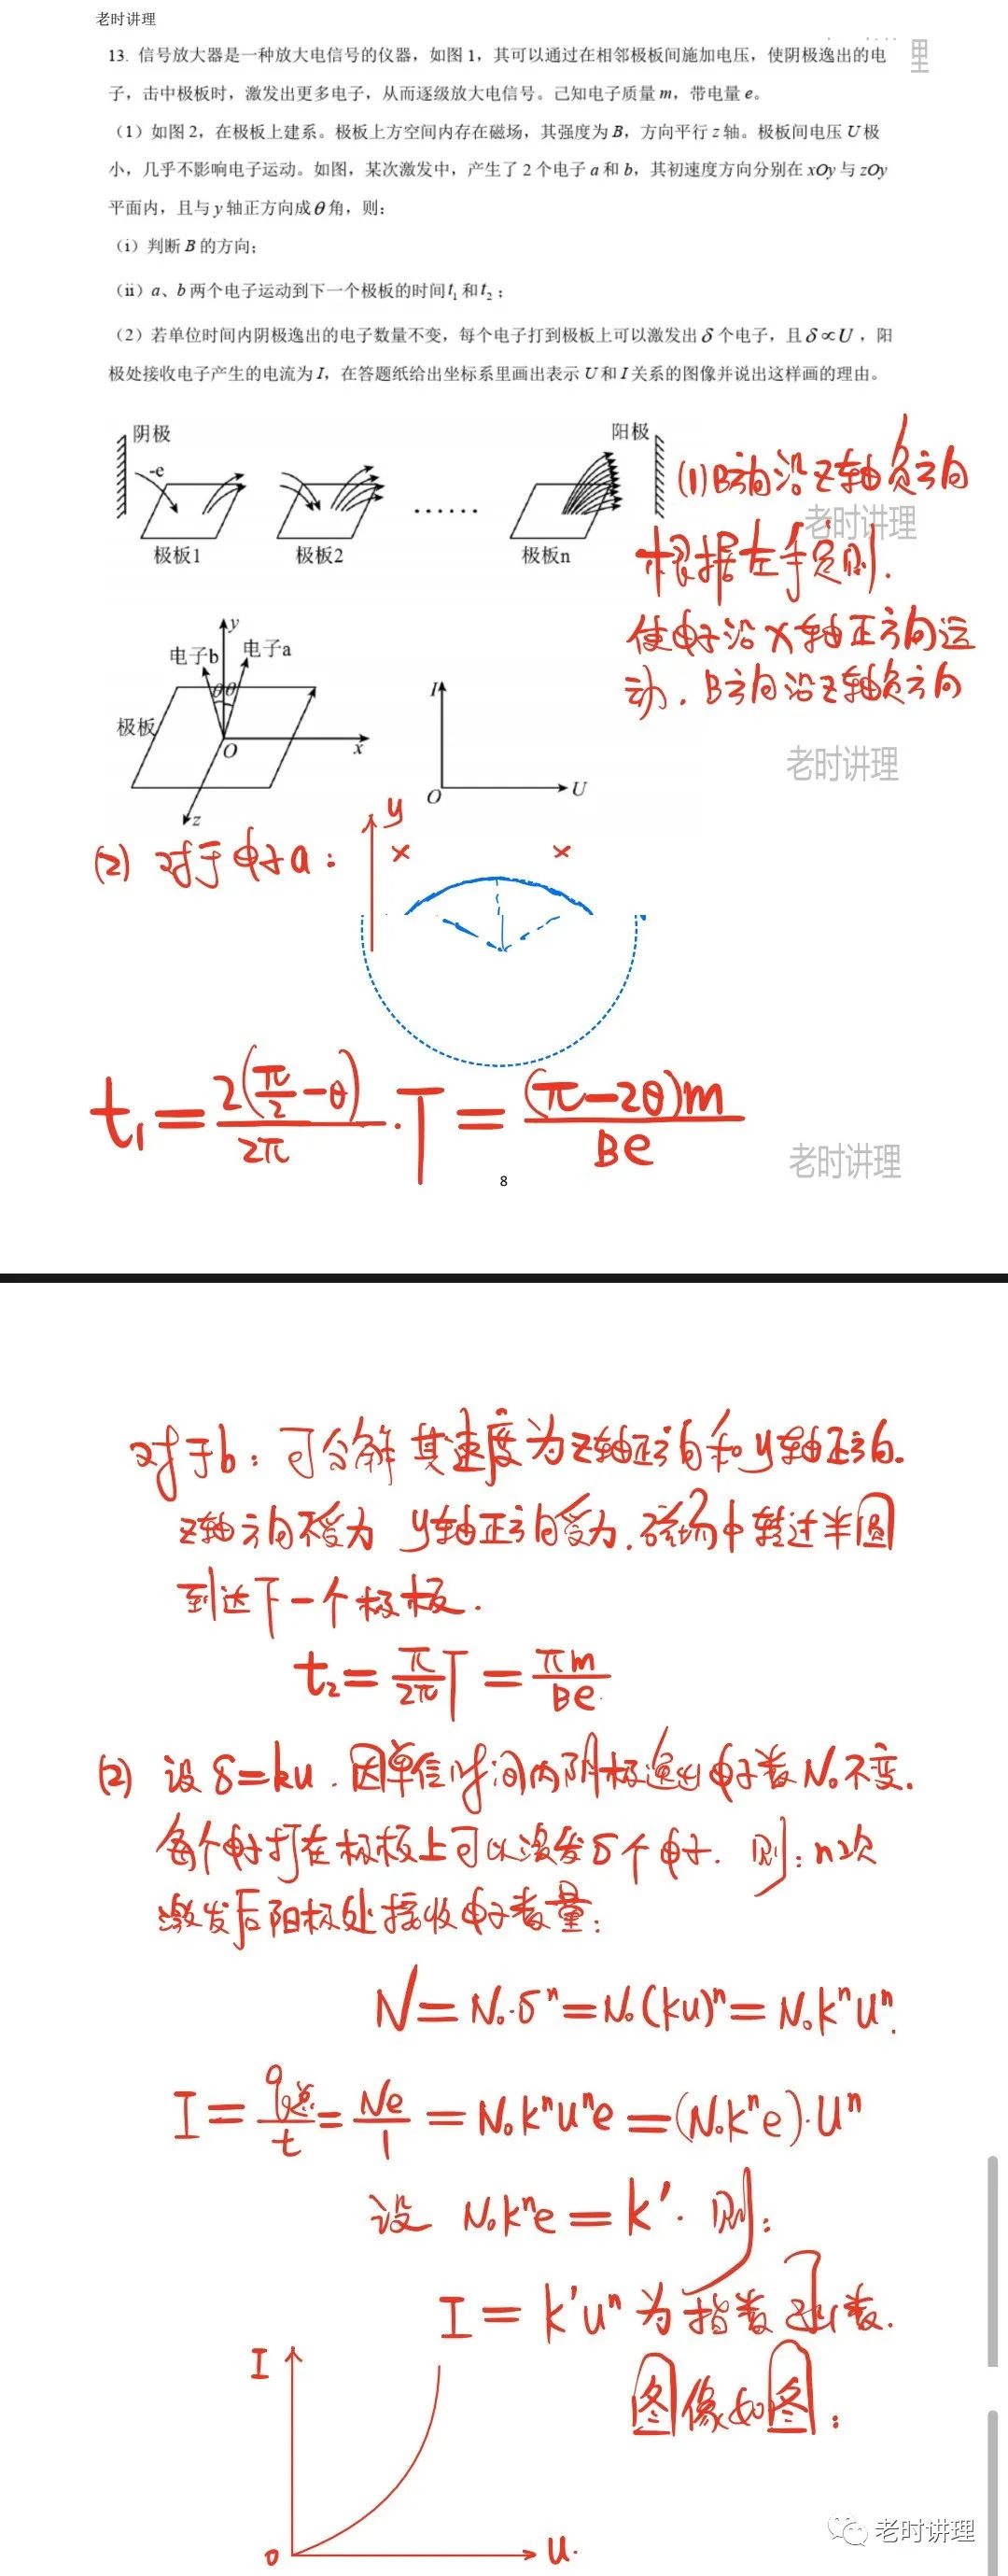 老时讲理
13. 信号放大器是一种放大电信号的仪器，如图 1，其可以通过在相邻极板间施加电压，使阴极逸出的电
子，击中极板时，激发出更多电子，从而逐级放大电信号。己知电子质量 m，带电量 e。
（1）如图 2，在极板上建系。极板上方空间内存在磁场，其强度为 B，方向平行 z 轴。极板间电压 U 极
小，几乎不影响电子运动。如图，某次激发中，产生了 2 个电子 a 和 b，其初速度方向分别在 xOy 与 zOy
平面内，且与 y 轴正方向成 θ 角，则：
（i）判断 B 的方向；
（ii）a、b 两个电子运动到下一个极板的时间 t₁ 和 t₂；
（2）若单位时间内阴极逸出的电子数量不变，每个电子打到极板上可以激发出 δ 个电子，且 δ∝U，阳
极处接收电子产生的电流为 I，在答题纸给出坐标系里画出表示 U 和 I 关系的图像并说出这样画的理由。
阴极
-e
极板1
极板2
……
极板n
阳极
(1) B方向沿Z轴负方向
老时讲理
根据左手定则.
使电子沿X轴正方向运
动. B方向沿Z轴负方向
y
电子b
电子a
θθ
极板
O
x
z
I
O
U
老时讲理
(2) 对于电子a：
y
×
×
t₁=2(π/2-θ)/2π·T=(π-2θ)m/Be
老时讲理
8
对于b：可分解其速度为Z轴正方向和y轴正方向.
Z轴方向不受力 y轴正方向受力.磁场中转过半圆
到达下一个极板.
t₂=π/2π T=πm/Be.
(2) 设δ=ku.因单位时间内阴极逸出电子数N₀不变.
每个电子打在极板上可以激发δ个电子. 则：n次
激发后阳极处接收电子数量：
N=N₀·δⁿ=N₀(ku)ⁿ=N₀kⁿuⁿ.
I=q总/t=Ne/1=N₀kⁿuⁿe=(N₀kⁿe)·Uⁿ
设 N₀kⁿe=k'. 则：
I=k'uⁿ为指数函数.
图像如图：
I
0
u.
老时讲理